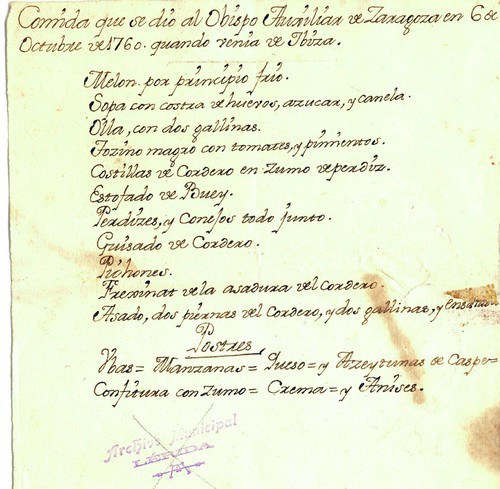 Comida que se dio al Obispo Auxiliar de Zaragoza en 6 de
Octubre de 1760. quando venia de Ibiza.
Melon por principio frio.
Sopa con costra de huevos, azucar, y canela.
Olla, con dos gallinas.
Tozino magro con tomates, y pimientos.
Costillas de Cordero en zumo de perdiz.
Estofado de Buey.
Perdizes, y Conejos todo junto.
Guisado de Cordero.
Pichones.
Frexinat de la asadura del Cordero.
Asado, dos piernas del Cordero, y dos gallinas, y Ensalada.
Postres
Vbas = Manzanas = Queso = y Azeytunas de Caspe =
Confitura con zumo = Crema = y Anises.
Archivo Municipal
LERIDA